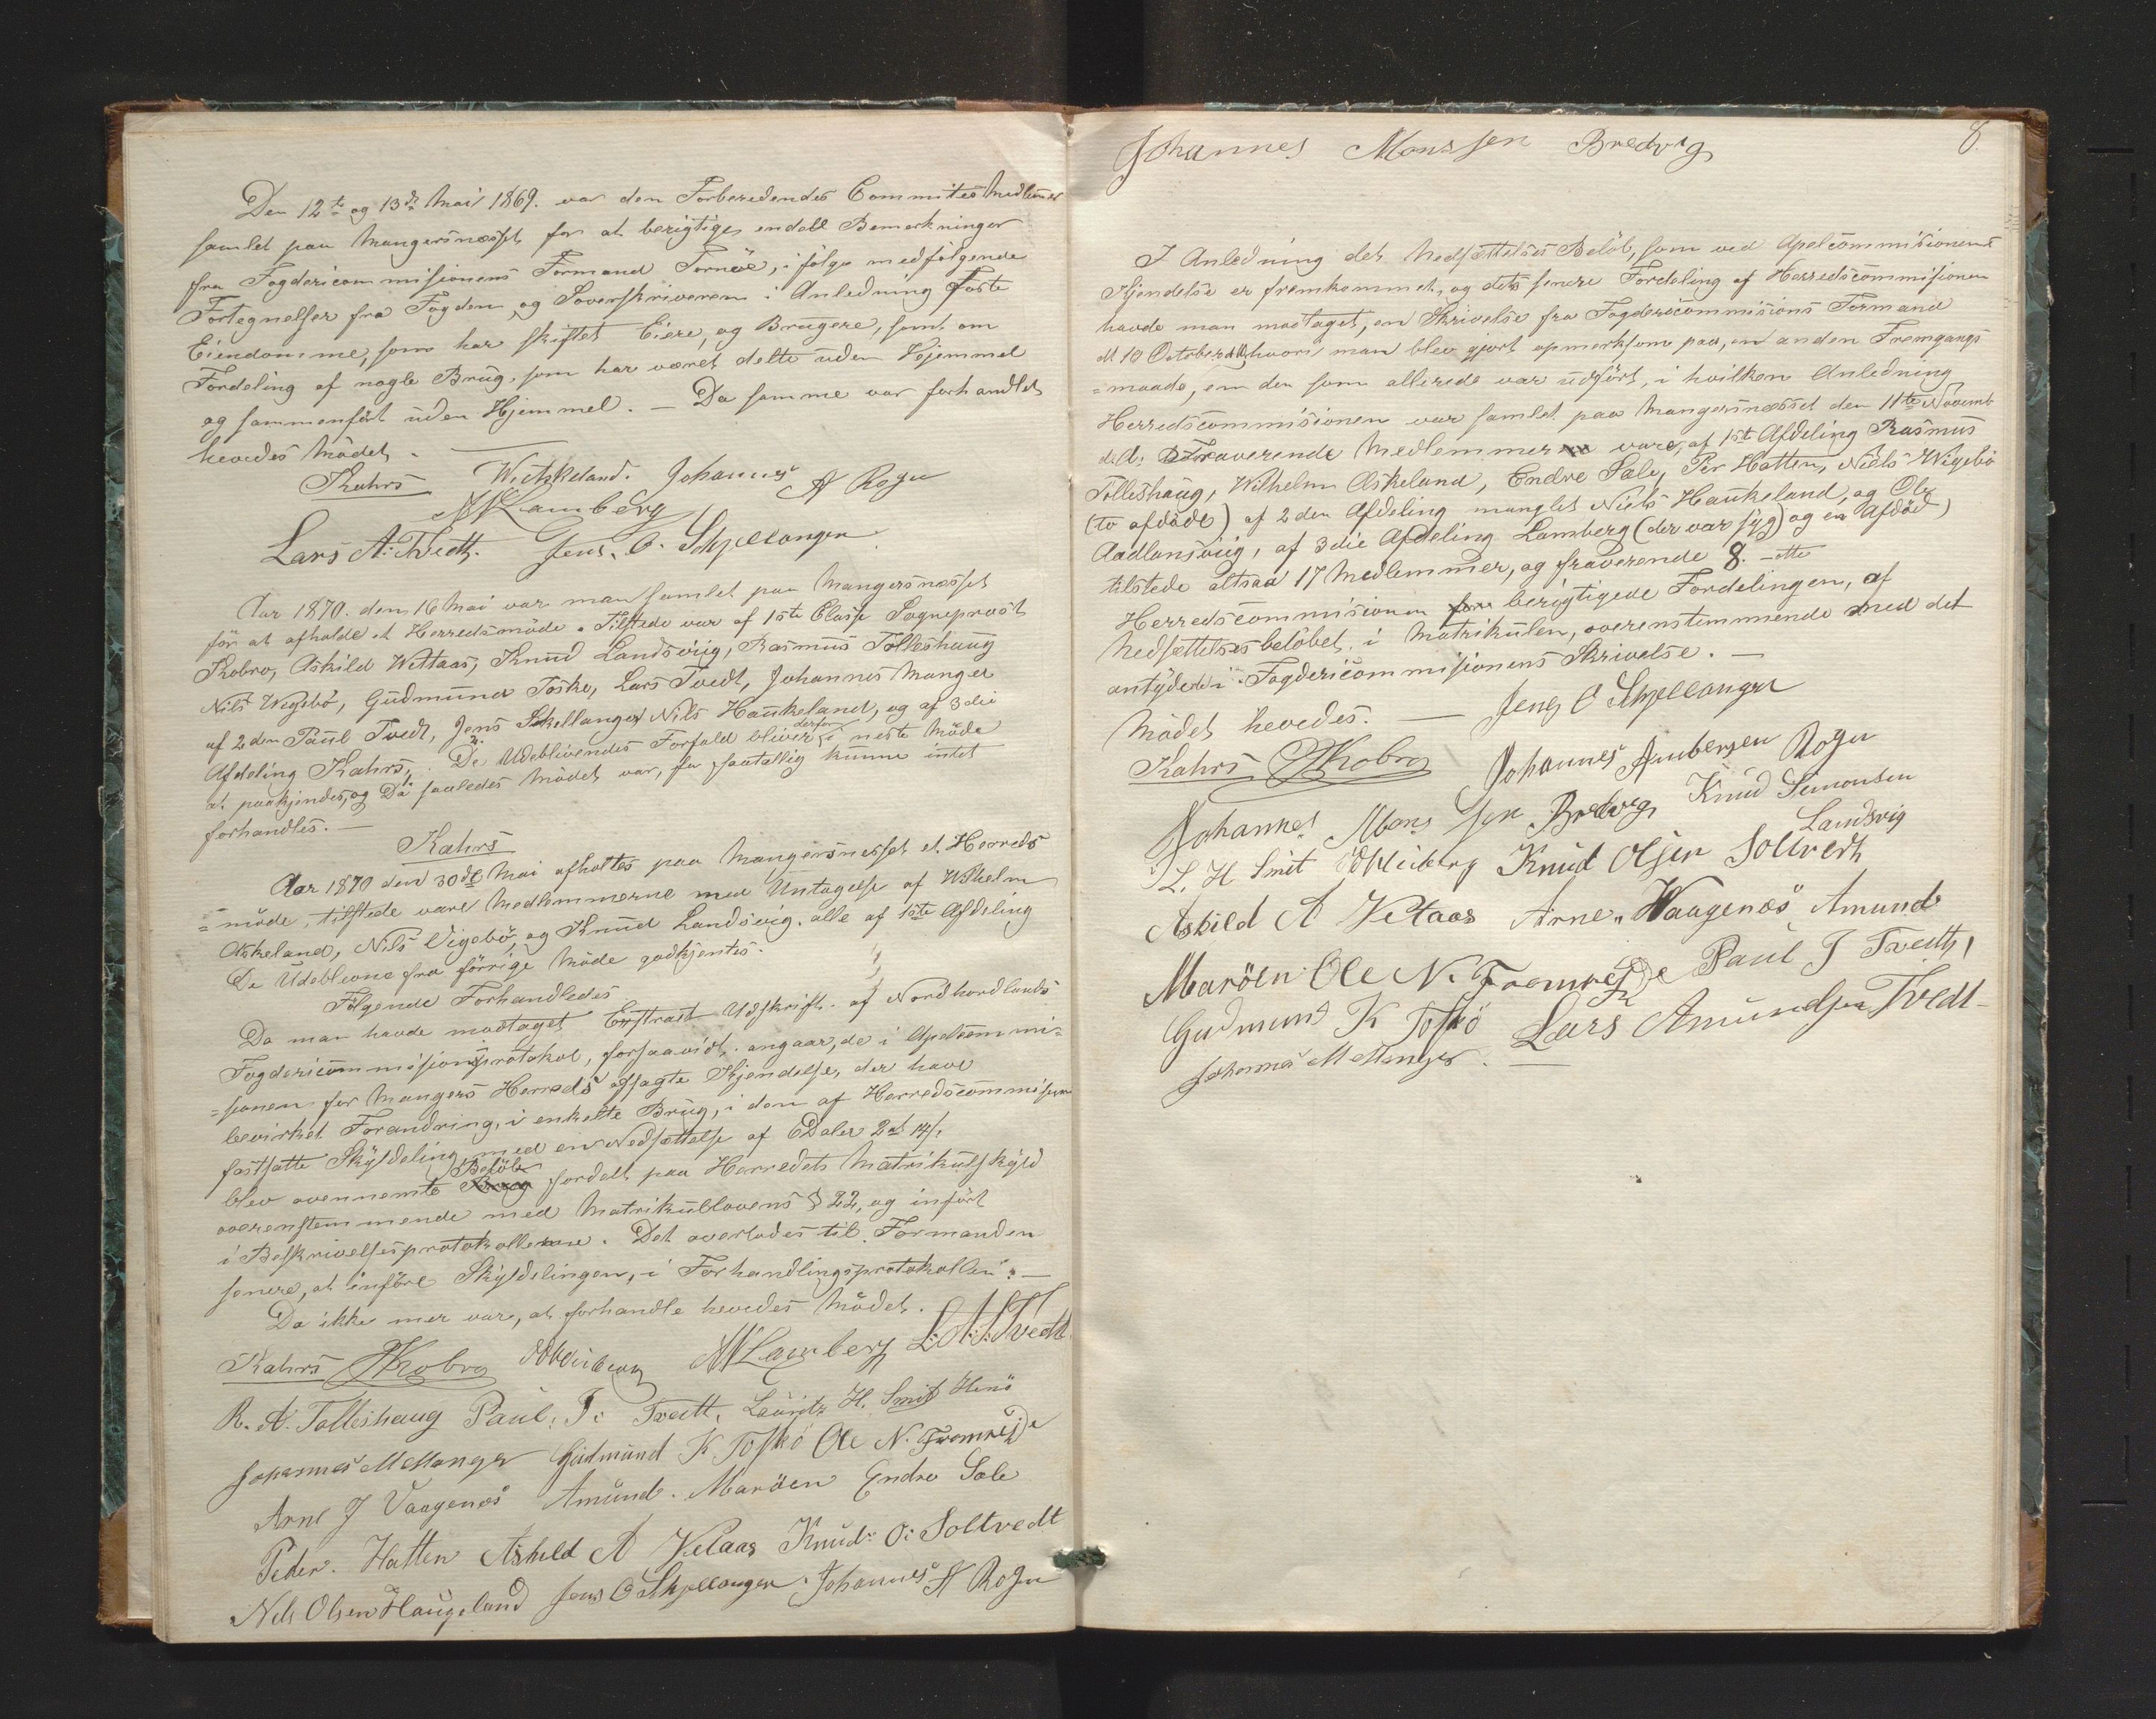 Den 12te og 13de Mai 1869. var den Forberedendes Commites Medlemer
samlet paa Mangersnæsset for at berigtige endell Bemerkninger
fra Fogdericommisionens Formand Tornöe, i fölge medfölgende
Fortegnelser fra Fogden og Soverskriveren i Anledning Faste
Eiendomme, som har skiftet Eiere, og Brugere, samt om
Fordeling af nogle Brug, som har været delte uden Hjemmel
og sammenfört uden Hjemmel. — Da samme var forhandlet
hævedes Mödet.
Kahrs Johannes A Rogn
Lamberg
Lars A: Tvedt. Jens. O. Schjellanger
Aar 1870. den 16 Mai var man samlet paa Mangersnæsset
for at afholde et Herredsmöde. Tilstede var af 1ste Classe Sogneprost
Kobro, Askild Wettaas, Knud Landsviig, Rasmus Tolleshaug
Nils Wigebö, Gudmund Toske, Lars Tvedt, Johannes Manger
af 2den Paul Tvedt, Jens Skellanger Nils Haukeland, og af 3die
Afdeling Kahrs, De Udeblivendes Forfald bliver derfor i neste Möde
at paakjendes, og Da saaledes Mödet var, for faatallig kunne intet
forhandles. —
Kahrs
Aar 1870 den 30de Mai afholtes paa Mangersnesset et Herreds
=möde, tilstede vare Medlemmerne med Untagelse af Wilhelm
Askeland, Nils Vigebö, og Knud Landsvig. alle af 1ste Afdeling
De Udeblevne fra forrige Möde godkjentes.
Fölgende Forhandledes
Da man havde modtaget Udskrift. af Nordhordlands
Fogdericommisionsprotokol, forsaavidt. angaar, de i Apelcommi-
=sionen for Mangers Herreds afsagte Kjendelse, der have
bevirket Forandring, i enkelte Brug, i den af Herredscommisionen
fastsatte Skyldeling, med en Nedsættelse af 6 Daler 2 ort 14 s.
blev ovennemte Belöb fordelt paa Herredets Matrikulskyld
overenstemmende med Matrikullovens § 22, og infört
i Beskrivelsesprotokollerne. Det overlodes til Formanden
senere, at införe Skyldelingen, i Forhandlingsprotokollen. —
Da ikke mer var, at forhandle hevedes Mödet.
Kahrs Kobro Lamberg L: A: Tvedt
R. A. Tolleshaug Paul. J: Tvedt, Lauritz H. Smit Henö
Johannes M Manger Gudmund K Toskö Ole N. Fromreide
Arne J Vaagenes Amund. Maröen Endre Sale
Peder. Hatten Askild A Vetaas Knud: O: Soltvedt
Nils Olsen Haugeland Jens O Skjellanger. Johannes A Rogn
8.
Johannes Monssen Bredvig
I Anledning det Nedsættelses Belöb, som ved Apelcommisionens
Kjendelse er fremkommet, og dets senere Fordeling af Herredscommisionen
havde man modtaget, en Skrivelse fra Fogdericommisions Formand
dt 10 October d.A. hvori man blev gjort opmerksom paa, en anden Fremgangs
=maade, en den som allerede var udfört, i hvilken Anledning
Herredscommisionen var samlet paa Mangersnæsset den 11te Novemb
d.A. Fraverende Medlemmer vare, af 1st Afdeling Rasmus
Tolleshaug, Wilhelm Askeland, Endre Sale, Per Hatten, Niels Wigebö
(to afdöde) af 2den Afdeling manglet Niels Haukeland, og Ole
Aadlansviig, af 3die Afdeling Lamberg (der var syg) og en Afdöd)
tilstede altsaa 17 Medlemmer, og fraverende 8. —
Herredscommisionen berigtigede Fordelingen, af
Nedsættelsesbelöbet, i Matrikulen, overenstemmende med det
antydede i Fogdericommisionens Skrivelse. —
Mödet hevedes. — Jens O Skjellanger
Kahrs Kobro Johannes Rogn
Johannes Mons sen Bredvig Knud Simonsen
Landsvig
L. H Smit Knud Olsen Soltvedt
Askild A Vetaas Arne. Waagenös Amund
Maröen Ole N. Fromreide Paul J Tvedt,
Gudmund K Toskö Lars Amundsen Tvedt
Johannes M Manger. —